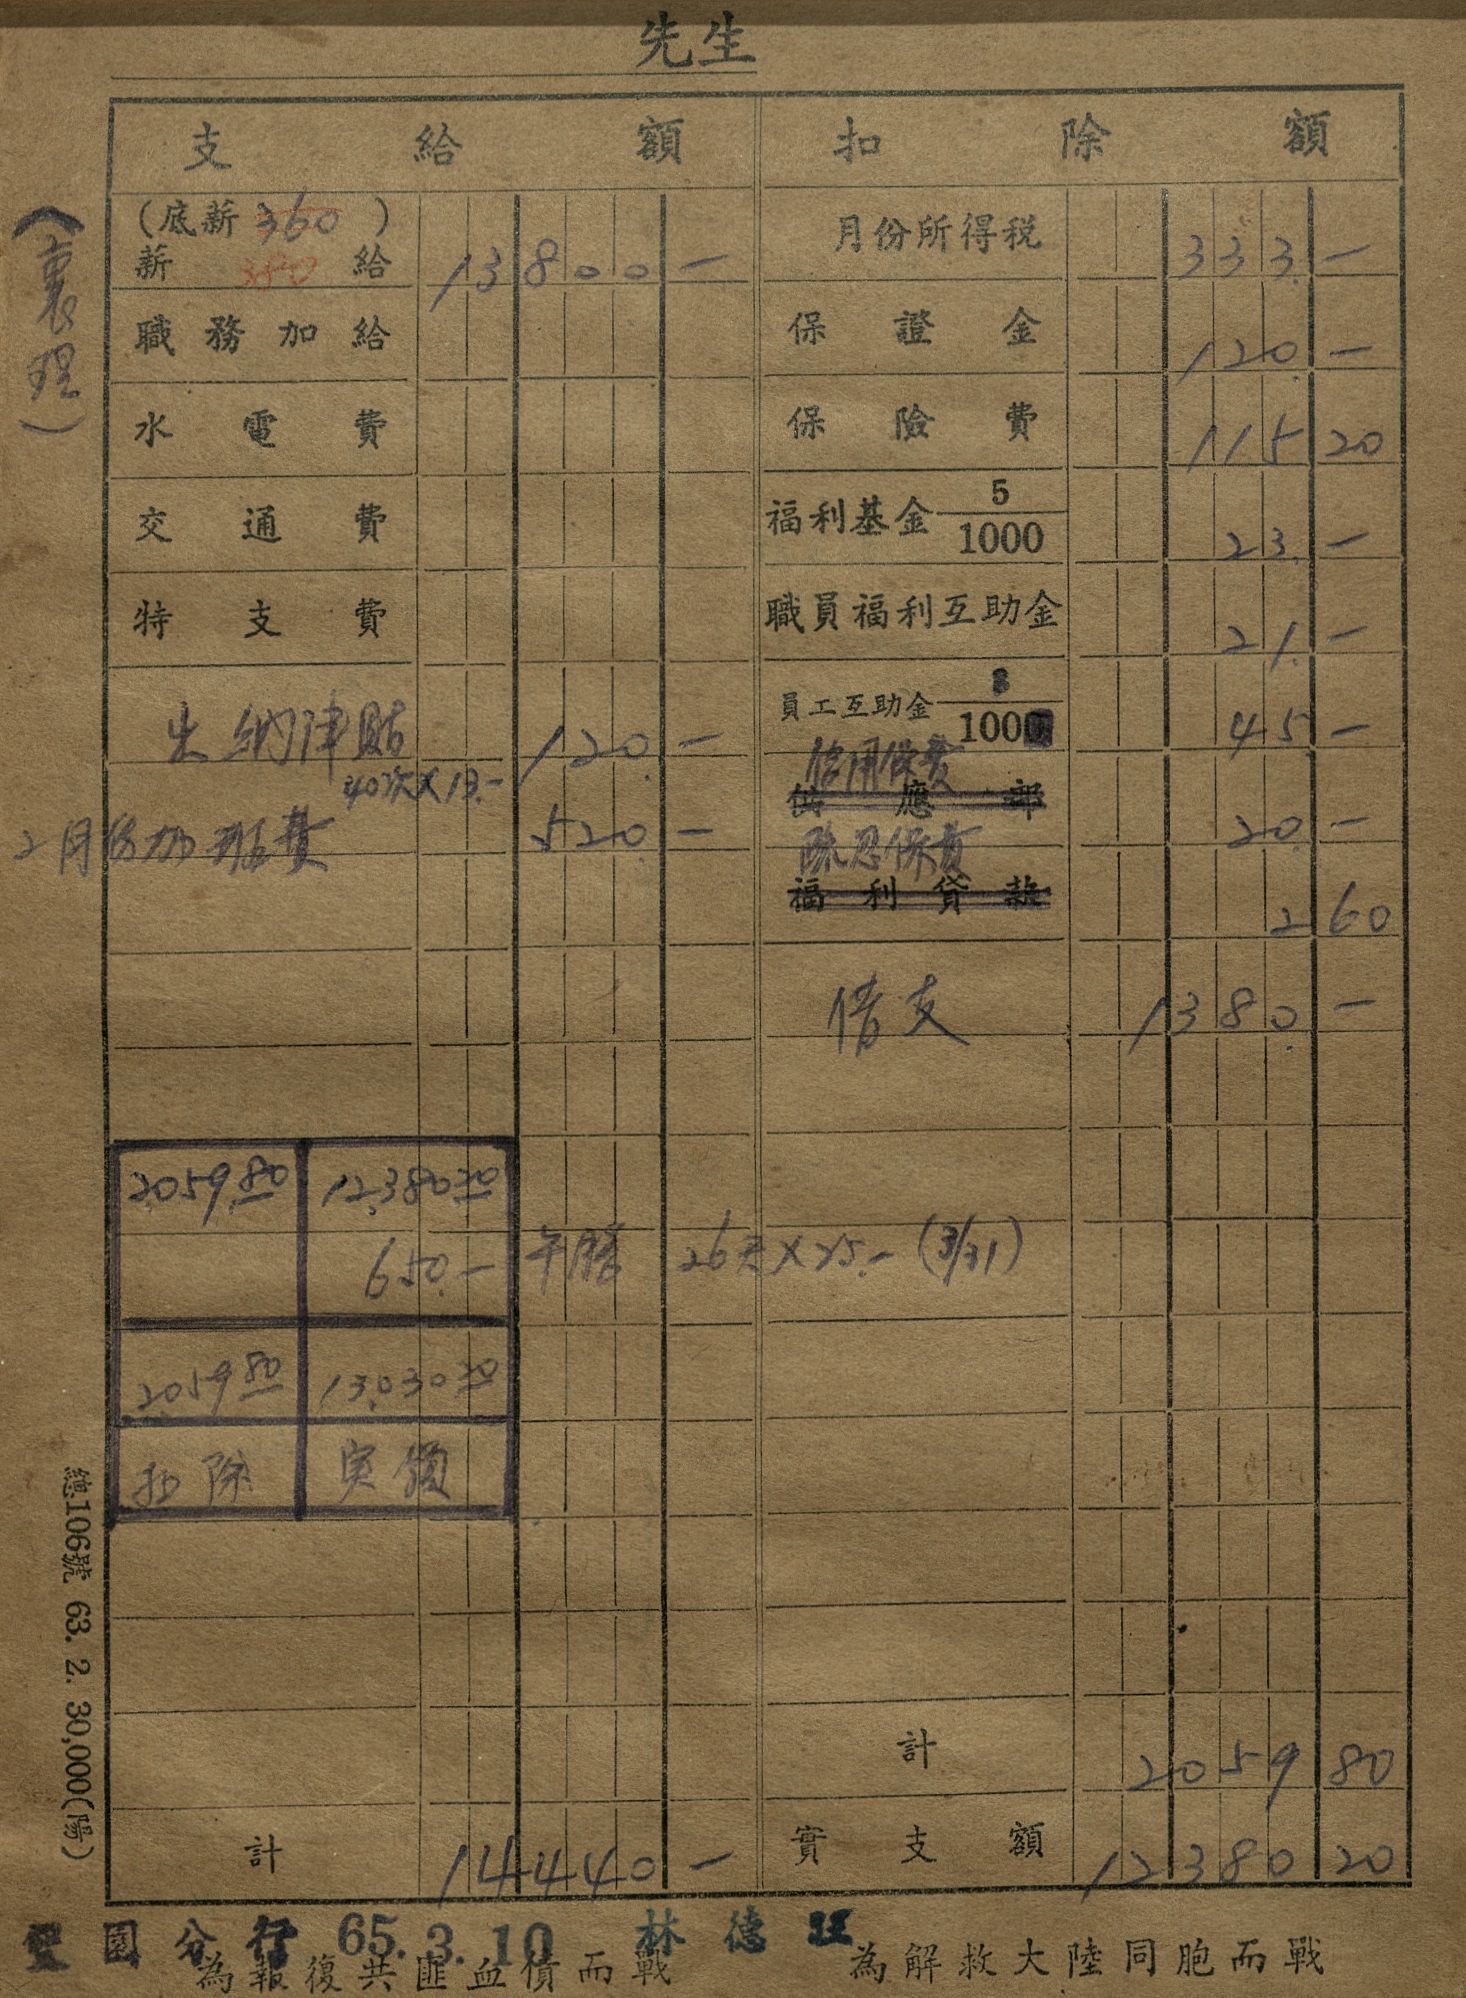 先生
支給額 扣除額
(底薪360)
薪 380 給 13800— 月份所得稅 333.—
職務加給 保證金 120.—
水電費 保險費 115 20
交通費 福利基金 5/1000 23.—
特支費 職員福利互助金 21.—
出納津貼 120.— 員工互助金 3/1000 45—
40次×13.—
信用保費
供應部 20.—
2月份加班費 520.—
保費
福利貸款 2 60
借支 1380.—
2,059.80 12,380.20
650.— 午膳 26天×25.— (3/31)
2,059.80 13,030.20
扣除 実領
計 2059 80
計 14440— 實支額 12380 20
(襄理)
總106號 63. 2. 30,000(陽)
園分行 65.3.10 林德旺
為報復共匪血債而戰 為解救大陸同胞而戰